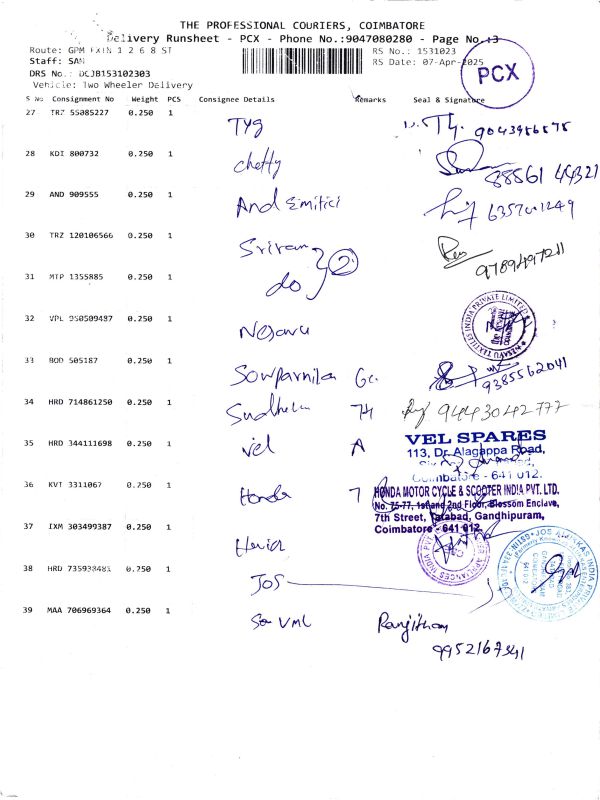 THE PROFESSIONAL COURIERS, COIMBATORE
Delivery Runsheet - PCX - Phone No.:9047080280 - Page No.:3
Route: GPM 1 2 6 8 ST RS No.: 1531023
Staff: SAN RS Date: 07-Apr-2025
DRS No.: DCJB153102303 PCX
Vehicle: Two Wheeler Delivery
S No Consignment No Weight PCS Consignee Details Remarks Seal & Signature
27 TRZ 55085227 0.250 1 Tyg 9043986878
28 KDI 800732 0.250 1 chetty 88561 44321
29 AND 909555 0.250 1 And Emitici 6357001249
30 TRZ 120106566 0.250 1 Sriram 2 9789497211
31 MTP 1355885 0.250 1 do
32 VPL 950509487 0.250 1 INDIA PRIVATE LIMITED
33 BOD 505187 0.250 1 Sowparnika 9385562041
34 HRD 714861250 0.250 1 94430 42777
35 HRD 344111698 0.250 1 Vel A VEL SPARES
113, Dr. Alagappa Road,
Coimbatore - 641 012.
36 KVT 3311067 0.250 1 Honda 7 HONDA MOTOR CYCLE & SCOOTER INDIA PVT. LTD.
No. 75-77, 1st and 2nd Floor, Blossom Enclave,
7th Street, Tatabad, Gandhipuram,
Coimbatore - 641 012.
37 IXM 303499387 0.250 1
38 HRD 735938481 0.250 1 JOS
39 MAA 706969364 0.250 1 VML Ranjitham
9952167341